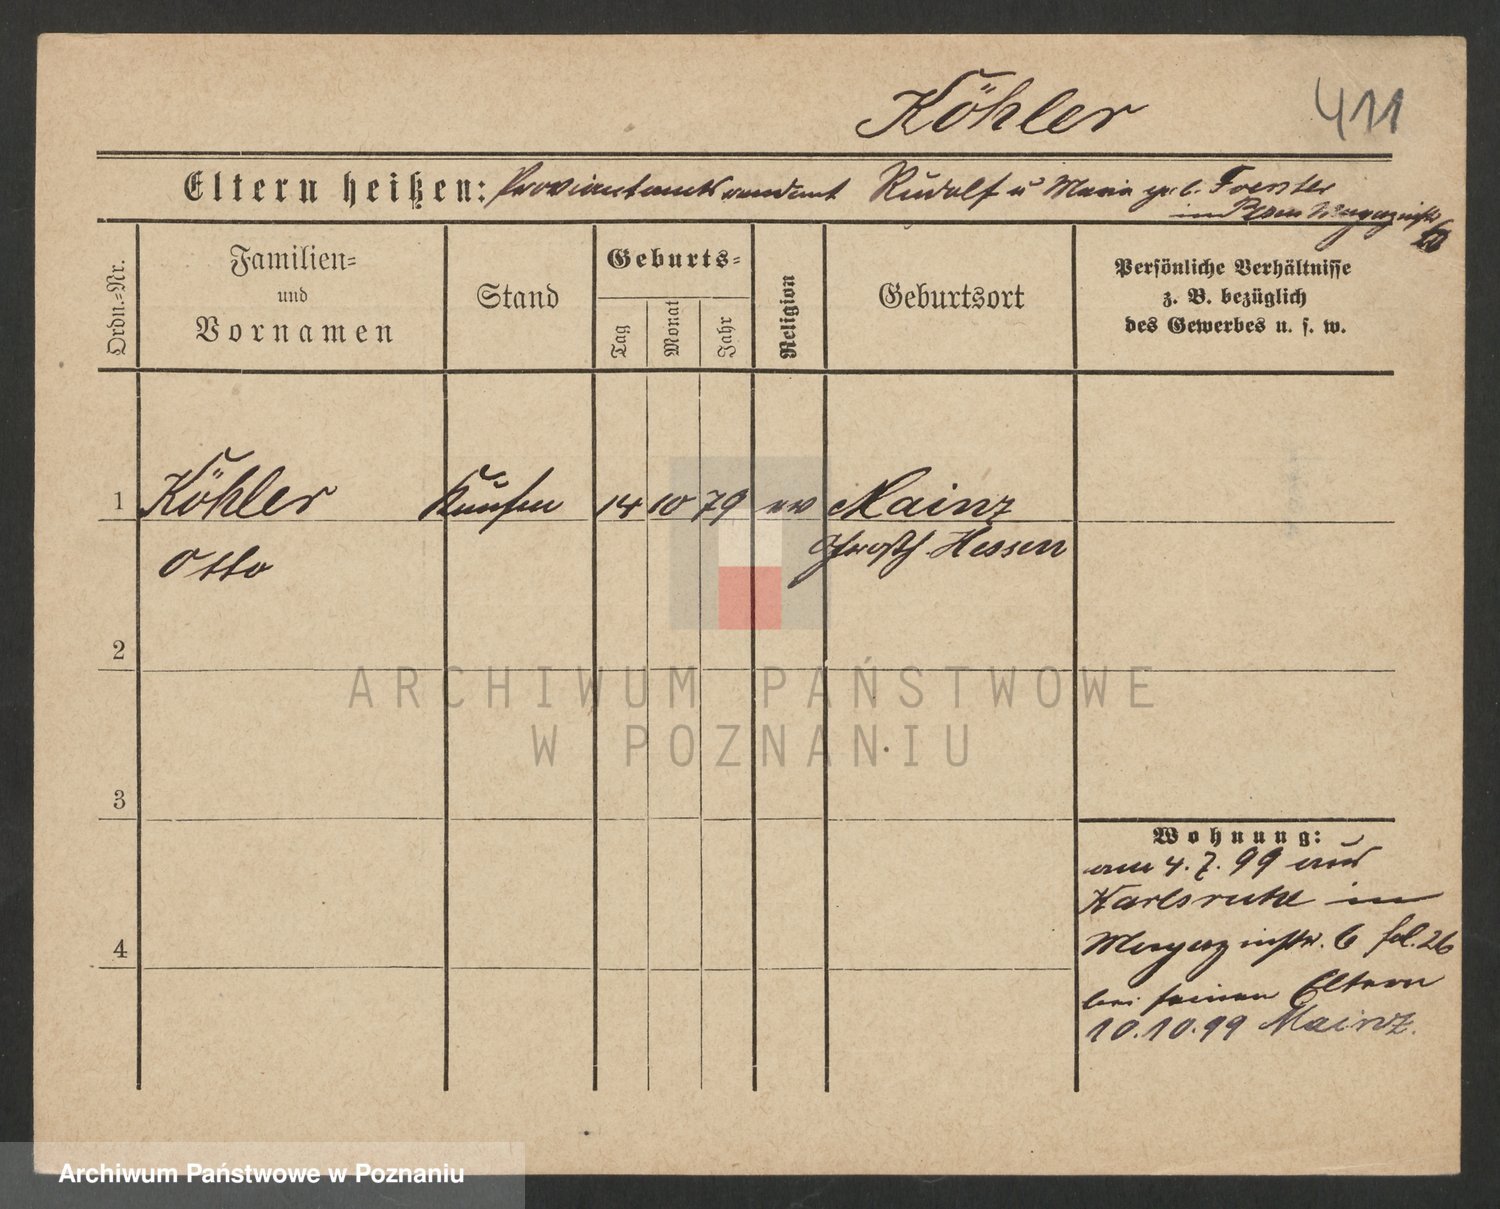 Köhler 411
Eltern heißen: Proviantamtsrendant Rudolf u Maria geb. Foerster
in Posen Magazinstr
Ordn.-Nr.
Familien-
und
Vornamen
Stand
Geburts-
Tag
Monat
Jahr
Religion
Geburtsort
Persönliche Verhältnisse
z. B. bezüglich
des Gewerbes u. s. w.
1 Köhler Kaufm 14 10 79 ev Mainz
Otto Hessen
2
3
4
Wohnung:
am 4. 7. 99 aus
Karlsruhe in
Magazinstr. 6 fol. 26
bei seinen Eltern
10.10.99 Mainz.
ARCHIWUM PAŃSTWOWE
W POZNANIU
Archiwum Państwowe w Poznaniu